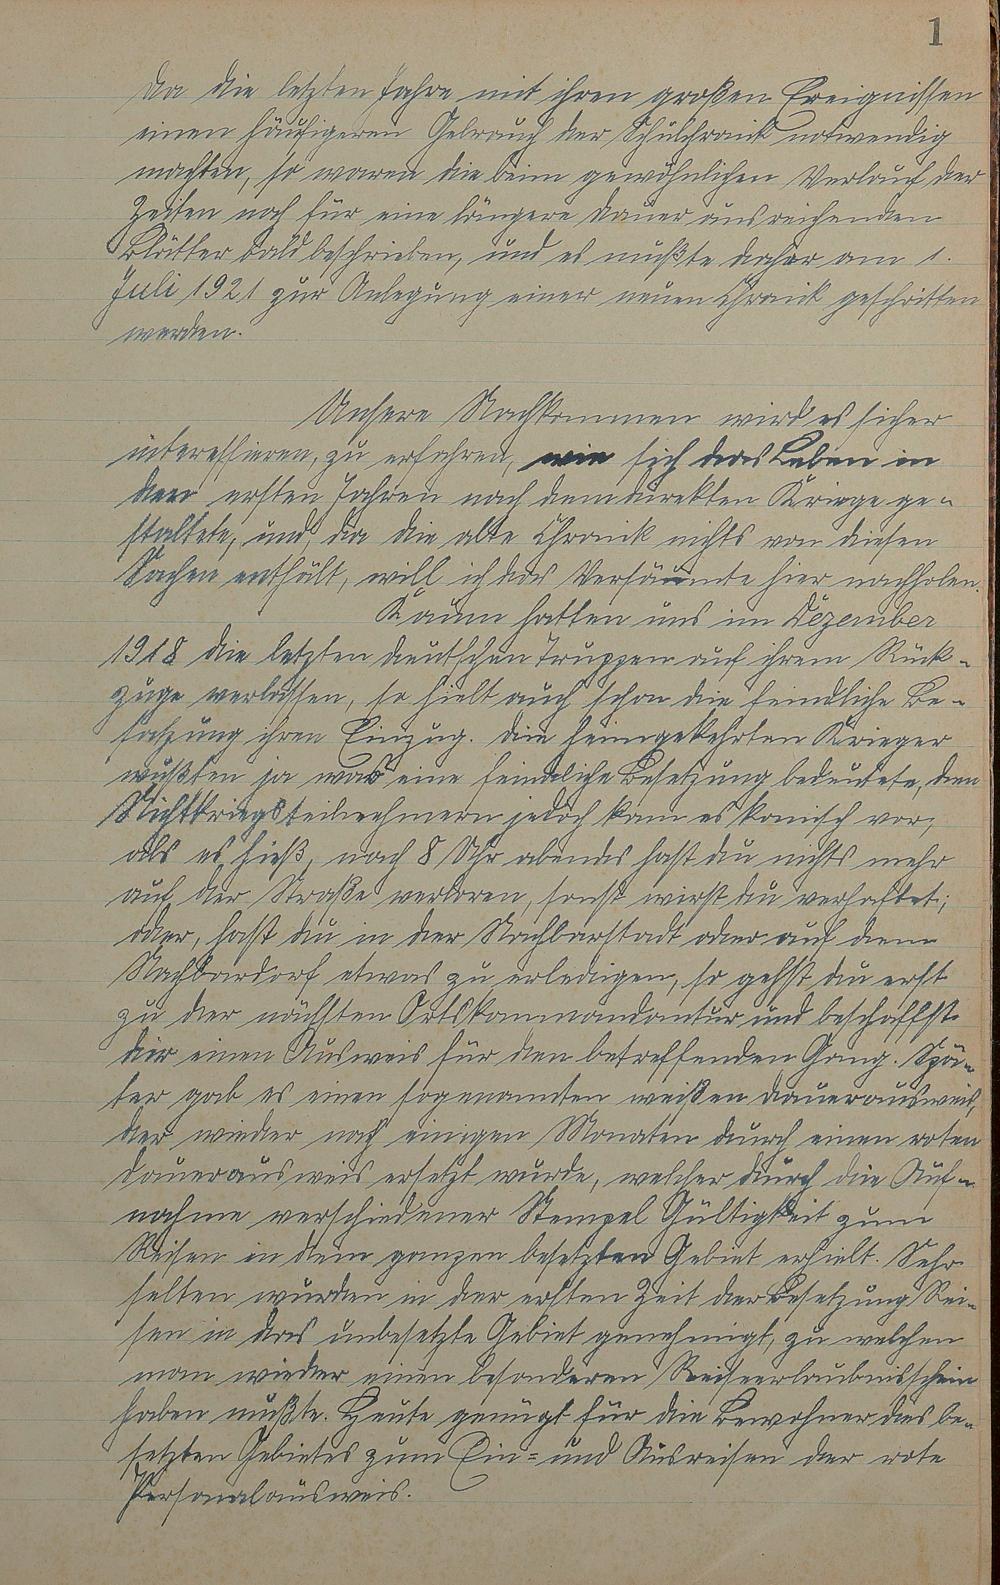 1
Da die letzten Jahre mit ihren großen Ereignissen
einen häufigeren Gebrauch der Schulchronik notwendig
machten, so waren die beim gewöhnlichen Verlauf der
Zeiten noch für eine längere Dauer ausreichenden
Blätter bald beschrieben, und es mußte daher am 1.
Juli 1921 zur Anlegung einer neuen Chronik geschritten
werden.
Unsere Nachkommen wird es sicher
interessieren, zu erfahren, wie sich das Leben in
den ersten Jahren nach dem direkten Kriege ge-
staltete, und, da die alte Chronik nichts von diesen
Sachen enthält, will ich das Versäumte hier nachholen.
Kaum hatten uns im Dezember
1918 die letzten deutschen Truppen auf ihrem Rück-
zuge verlassen, so hielt auch schon die feindliche Be-
satzung ihren Einzug. Die heimgekehrten Krieger
wußten ja was eine feindliche Besetzung bedeutete, den
Nichtkriegsteilnehmern jedoch kam es komisch vor,
als es hieß, nach 8 Uhr abends hast du nichts mehr
auf der Straße verloren, sonst wirst du verhaftet;
oder, hast du in der Nachbarstadt oder auf dem
Nachbardorf etwas zu erledigen, so gehst du erst
zu der nächsten Ortskommandantur und beschaffst
dir einen Ausweis für den betreffenden Gang. Spä-
ter gab es einen sogenannten weißen Dauerausweis,
der wieder nach einigen Monaten durch einen roten
Dauerausweis ersetzt wurde, welcher durch die Auf-
nahme verschiedener Stempel Gültigkeit zum
Reisen in dem ganzen besetzten Gebiet erhielt. Sehr
selten wurden in der ersten Zeit der Besetzung Rei-
sen in das unbesetzte Gebiet genehmigt, zu welchen
man wieder einen besonderen Reiseerlaubnisschein
haben mußte. Heute genügt für die Bewohner des be-
setzten Gebietes zum Ein- und Ausreisen der rote
Personalausweis.